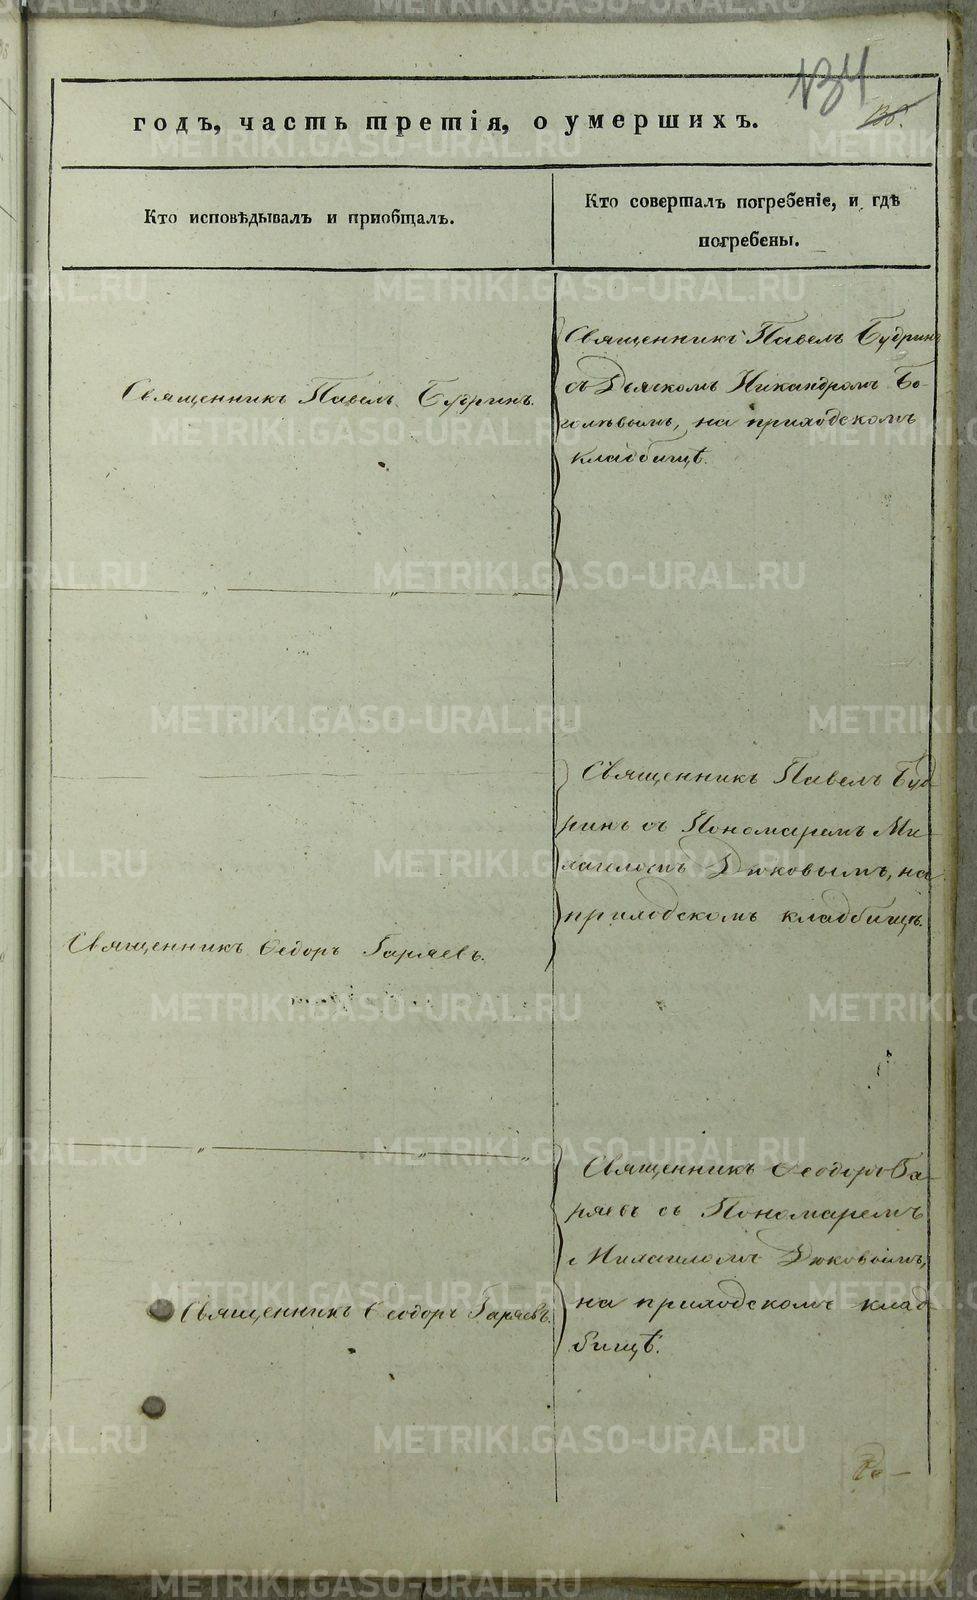 134
136.
годъ, часть третія, о умершихъ.
Кто исповѣдывалъ и пріобщалъ.
Кто совершалъ погребеніе, и гдѣ
погребены.
Священникъ Павелъ Будринъ.
Священникъ Павелъ Будринъ
съ Дьячкомъ Никандромъ Бо-
голѣвымъ, на приходскомъ
кладбищѣ.
Священникъ Павелъ Буд-
ринъ съ Пономаремъ Ми-
хаиломъ Дюковымъ, на
приходскомъ кладбищѣ.
Священникъ Ѳедоръ Гаряевъ.
Священникъ Ѳеодоръ Га-
ряевъ съ Пономаремъ
Михаиломъ Дюковымъ,
на приходскомъ клад
бищѣ.
Священникъ Ѳеодоръ Гаряевъ.
METRIKI.GASO-URAL.RU